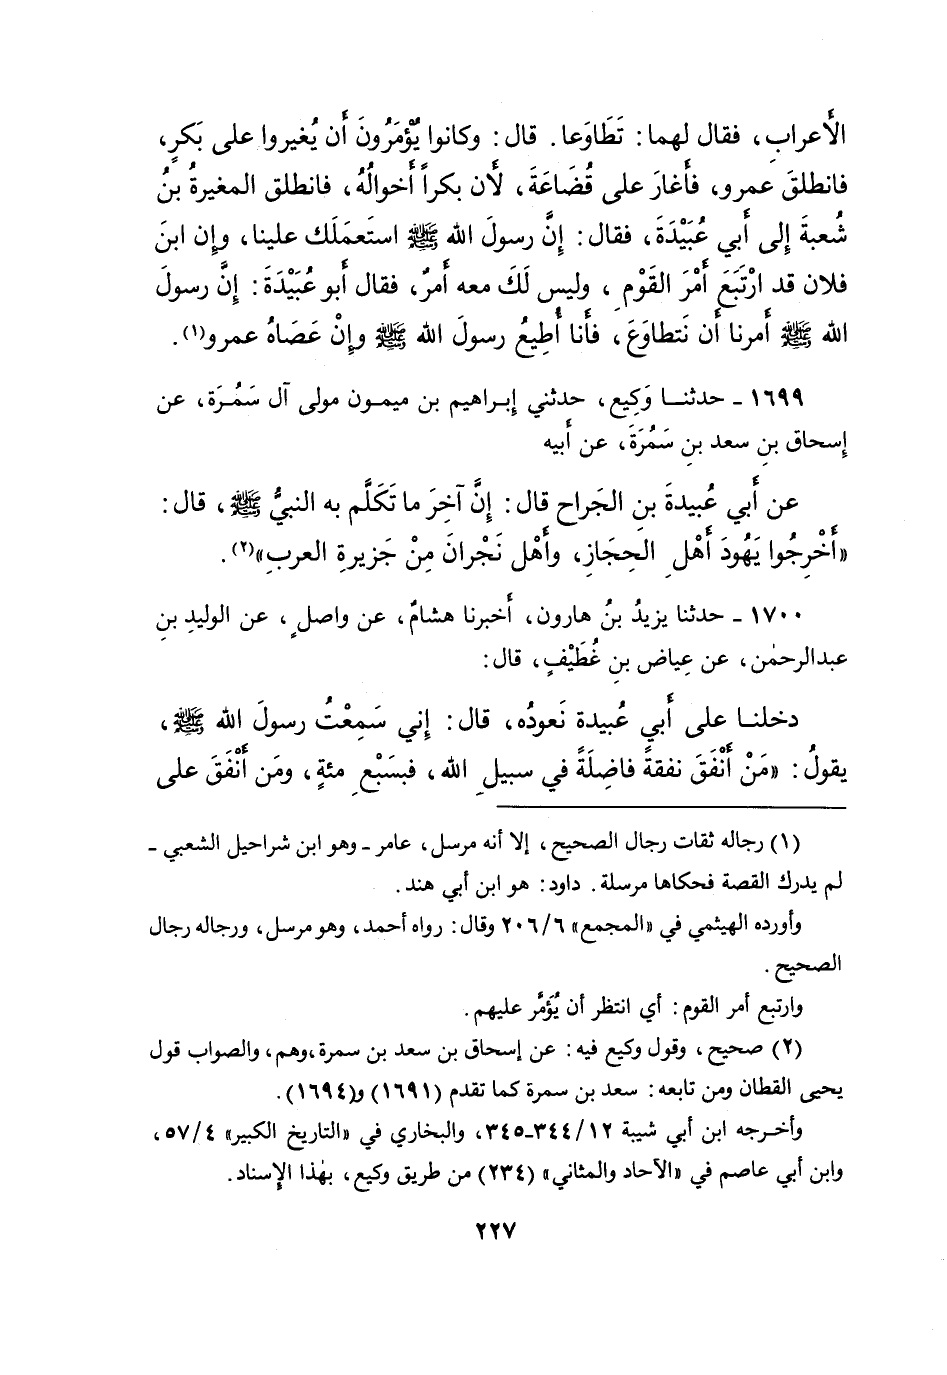 الأَعراب، فقال لهما: تَطَاوَعا. قال: وكانوا يُؤْمَرُونَ أَن يُغيروا على بَكرٍ،
فانطلقَ عمرو، فأَغارَ على قُضَاعَةَ، لأَن بكراً أَخوالُهُ، فانطلق المغيرةُ بنُ
شُعبةَ إلى أَبي عُبَيْدَةَ، فقال: إِنَّ رسولَ الله ﷺ استَعمَلَك علينا، وإن ابنَ
فلان قد ارْتَبَعَ أَمْرَ القَوْمِ، وليس لَكَ معه أَمرٌ، فقال أَبو عُبَيْدَةَ: إِنَّ رسولَ
الله ﷺ أَمرنا أَن نَتطاوَعَ، فأَنا أُطِيعُ رسولَ الله ﷺ وإنْ عَصَاهُ عمرو(١).
١٦٩٩ - حدثنا وَكِيع، حدثني إبراهيم بن ميمون مولى آل سَمُرَة، عن
إسحاق بنِ سعد بنِ سَمُرَةَ، عن أَبيه
عن أَبي عُبيدةَ بنِ الجَراح قال: إِنَّ آخِرَ ما تَكَلَّم به النبيُّ ﷺ، قال:
«أَخْرِجُوا يَهُودَ أَهْلِ الحِجَازِ، وأَهْل نَجْرانَ مِنْ جَزيرةِ العربِ»(٢).
١٧٠٠ - حدثنا يزيدُ بنُ هارون، أَخبرنا هشامٌ، عن واصلٍ، عن الوليدِ بنِ
عبدالرحمٰن، عن عِياض بنِ غُطَيْفٍ، قال:
دخلنا على أَبي عُبيدة نَعودُه، قال: إِني سَمِعْتُ رسولَ الله ﷺ،
يقولُ: «مَنْ أَنْفَقَ نفقةً فاضِلَةً في سبيلِ الله، فبسَبْعِ مئةٍ، ومَن أَنْفَقَ على
(١) رجاله ثقات رجال الصحيح، إلا أنه مرسل، عامر - وهو ابن شراحيل الشعبي -
لم يدرك القصة فحكاها مرسلة. داود: هو ابن أبي هند.
وأورده الهيثمي في «المجمع» ٢٠٦/٦ وقال: رواه أحمد، وهو مرسل، ورجاله رجال
الصحيح.
وارتبع أمر القوم: أي انتظر أن يُؤَمَّر عليهم.
(٢) صحيح، وقول وكيع فيه: عن إسحاق بن سعد بن سمرة،وهم، والصواب قول
يحيى القطان ومن تابعه: سعد بن سمرة كما تقدم (١٦٩١) و(١٦٩٤).
وأخرجه ابن أبي شيبة ٣٤٤/١٢-٣٤٥، والبخاري في «التاريخ الكبير» ٥٧/٤،
وابن أبي عاصم في «الآحاد والمثاني» (٢٣٤) من طريق وكيع، بهٰذا الإسناد.
٢٢٧